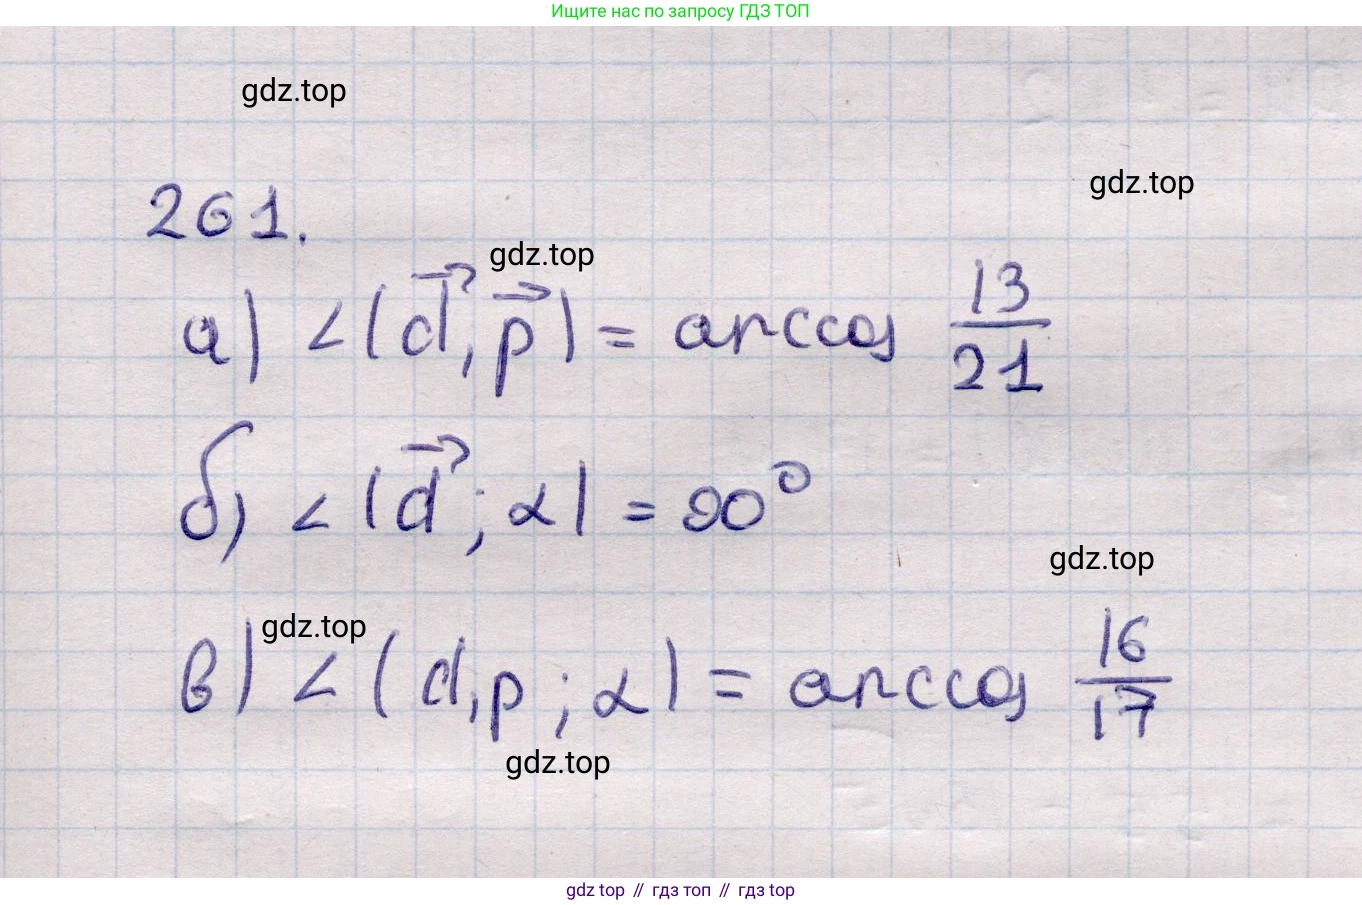 Ищите нас по запросу ГДЗ ТОП
gdz.top
gdz.top
261.
gdz.top
а) ∠(d⃗, p⃗) = arccos 13/21
б) ∠(d⃗; α) = 90°
gdz.top
gdz.top
в) ∠(d,p; α) = arccos 16/17
gdz.top
gdz top // гдз топ // gdz top